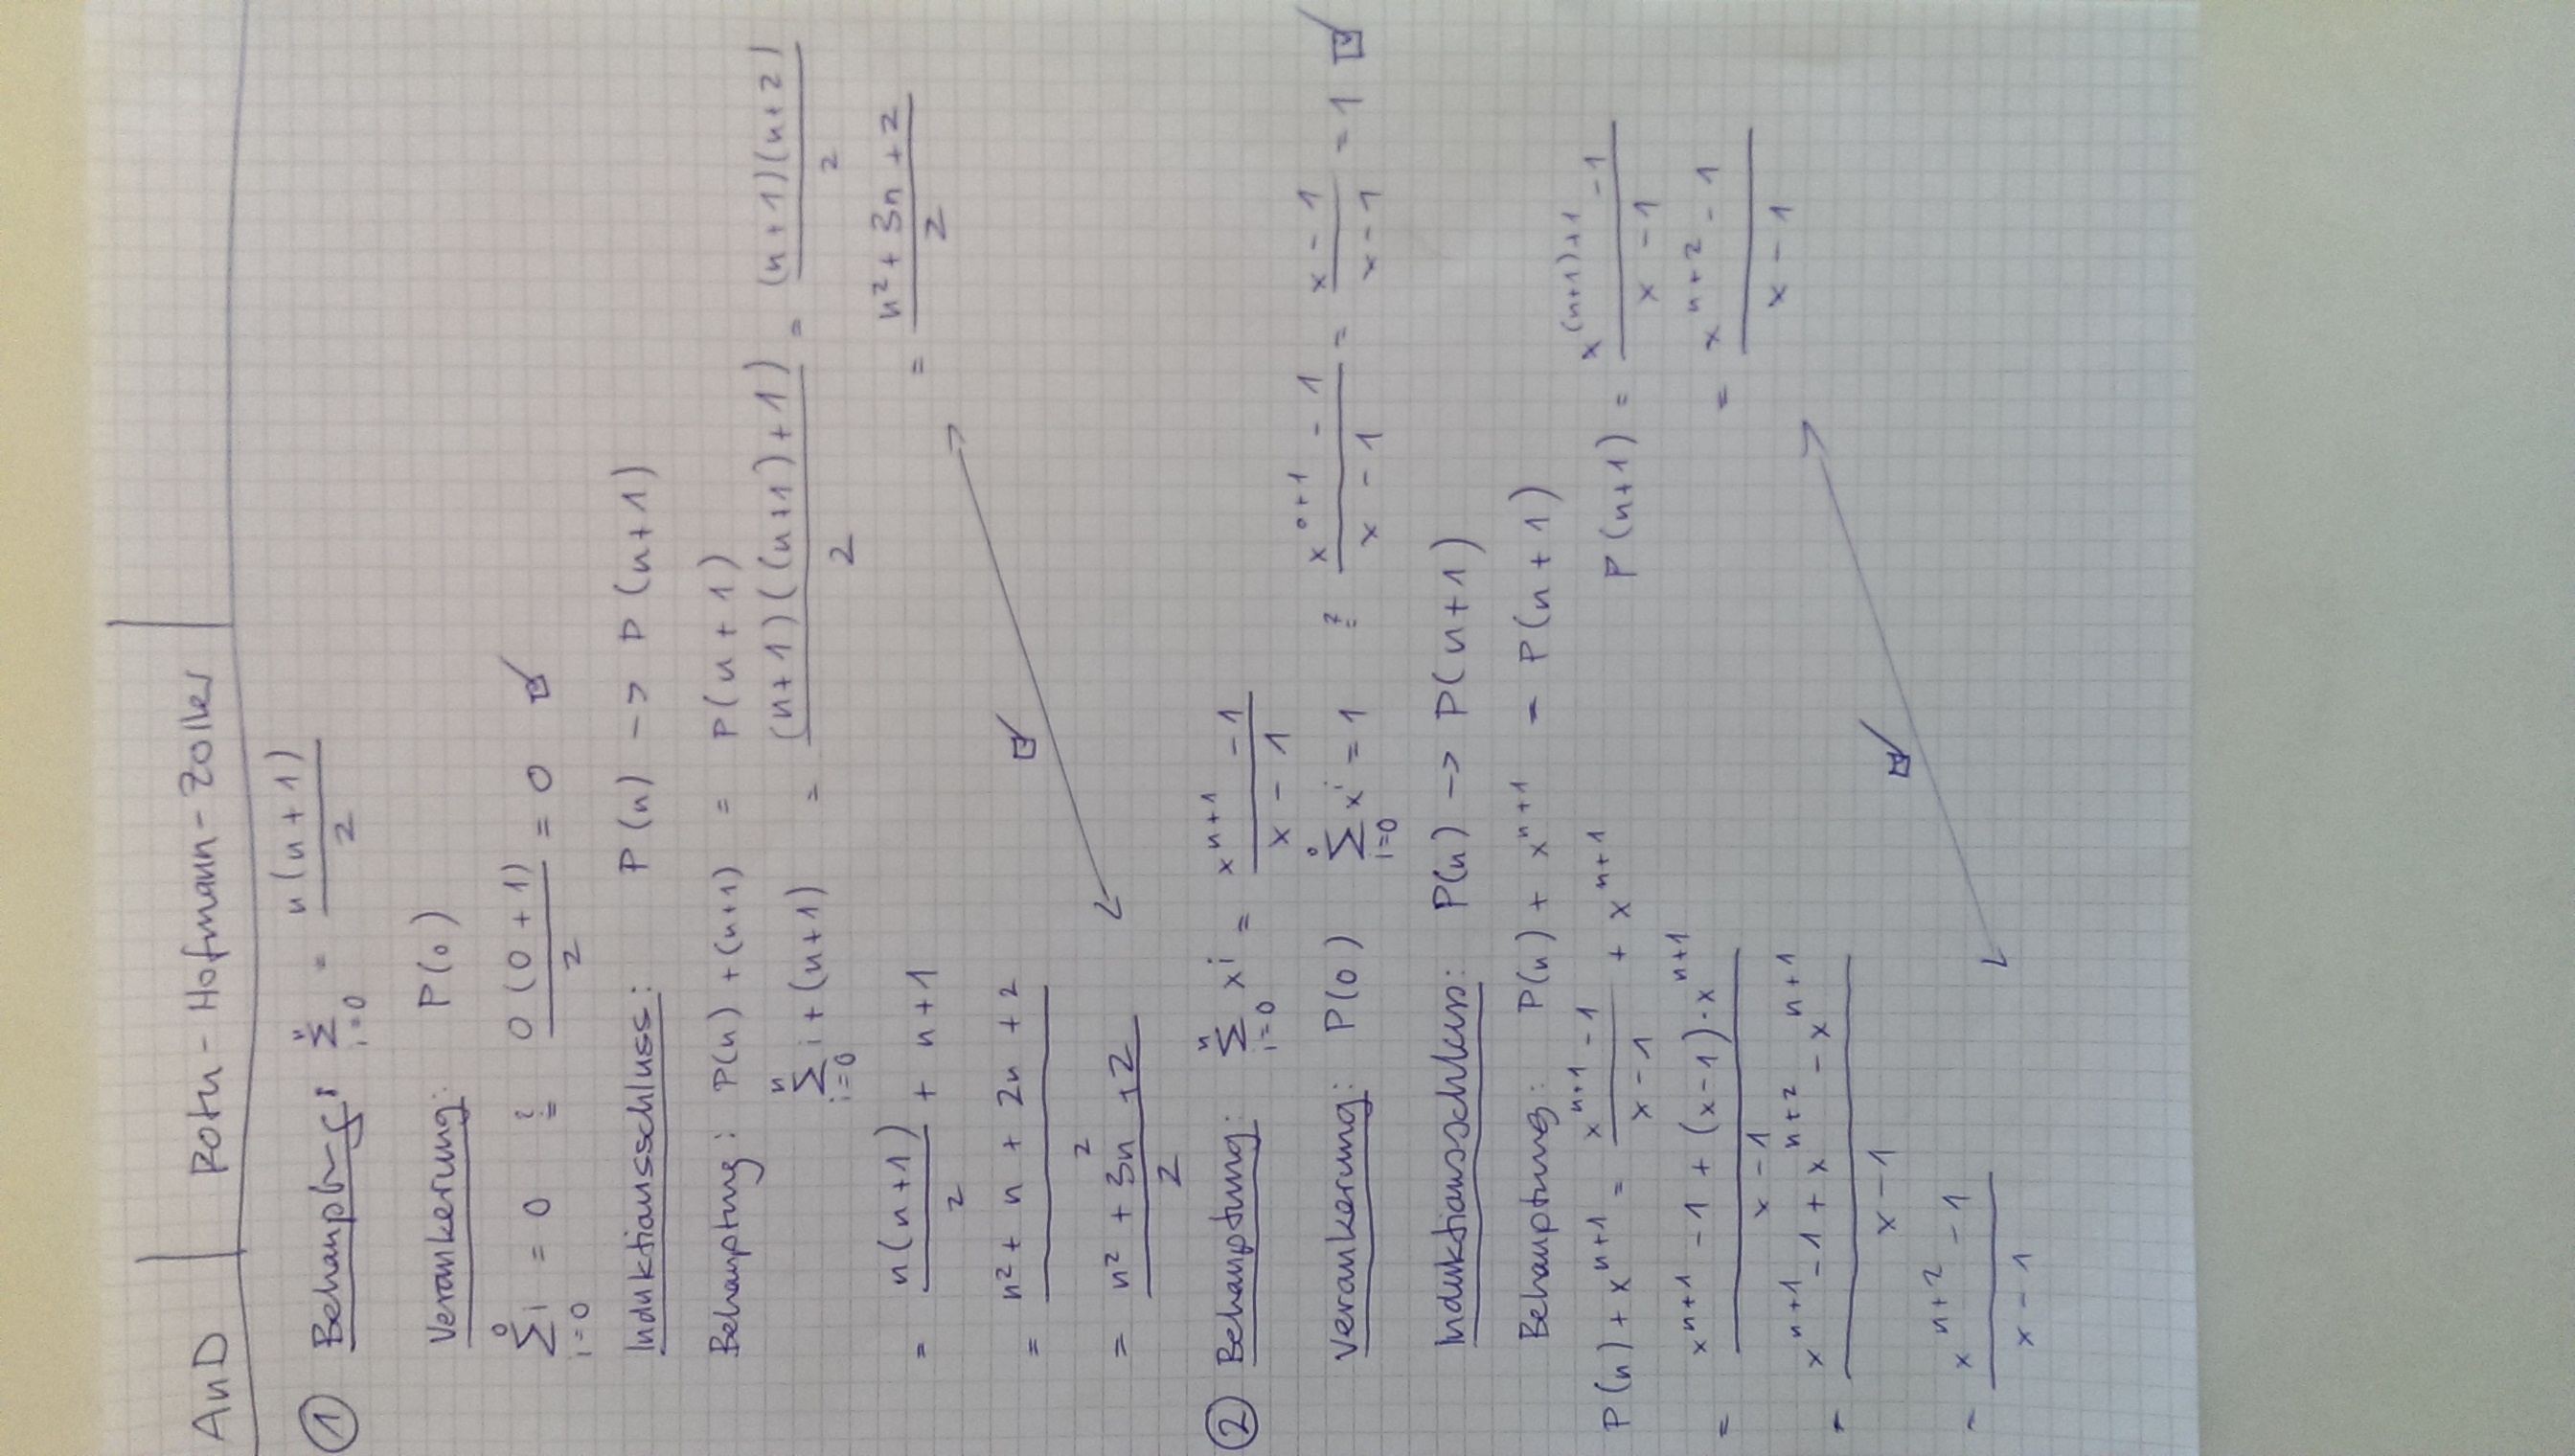 AnD | Roth - Hofmann - Zoller |
① Behauptung: n Σ i=0 = n(n+1) / 2
Verankerung: P(0)
0 Σ i=0 i = 0 ≟ 0(0+1) / 2 = 0 ☑
Induktionsschluss: P(n) -> P(n+1)
Behauptung: P(n) + (n+1) = P(n+1)
n Σ i=0 i + (n+1) = (n+1)((n+1)+1) / 2 = (n+1)(n+2) / 2
= n(n+1) / 2 + n+1
= n² + 3n + 2 / 2
= n² + n + 2n + 2 / 2 ☑
= n² + 3n + 2 / 2
② Behauptung: n Σ i=0 xⁱ = x^(n+1) - 1 / x - 1
Verankerung: P(0) 0 Σ i=0 xⁱ = 1 ≟ x^(0+1) - 1 / x - 1 = x - 1 / x - 1 = 1 ☑
Induktionsschluss: P(n) -> P(n+1)
Behauptung: P(n) + x^(n+1) = P(n+1)
P(n) + x^(n+1) = x^(n+1) - 1 / x - 1 + x^(n+1)
P(n+1) = x^((n+1)+1) - 1 / x - 1
= x^(n+1) - 1 + (x-1)·x^(n+1) / x - 1
= x^(n+2) - 1 / x - 1
= x^(n+1) - 1 + x^(n+2) - x^(n+1) / x - 1
☑
= x^(n+2) - 1 / x - 1